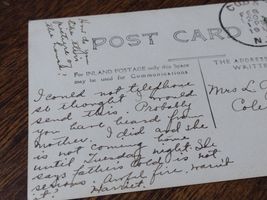 POST CARD
FOR INLAND POSTAGE only this Space
may be used for Communications
THE ADDRESS
WRITTEN
Mrs L
Cole
I could not telephone
so thought I would
send this. Probably
you have heard from
mother. I did and she
is not coming home
until Tuesday night. She
says father's cold is not
serious. Awful fire, wasn't it
Harriet.
How do you
like this